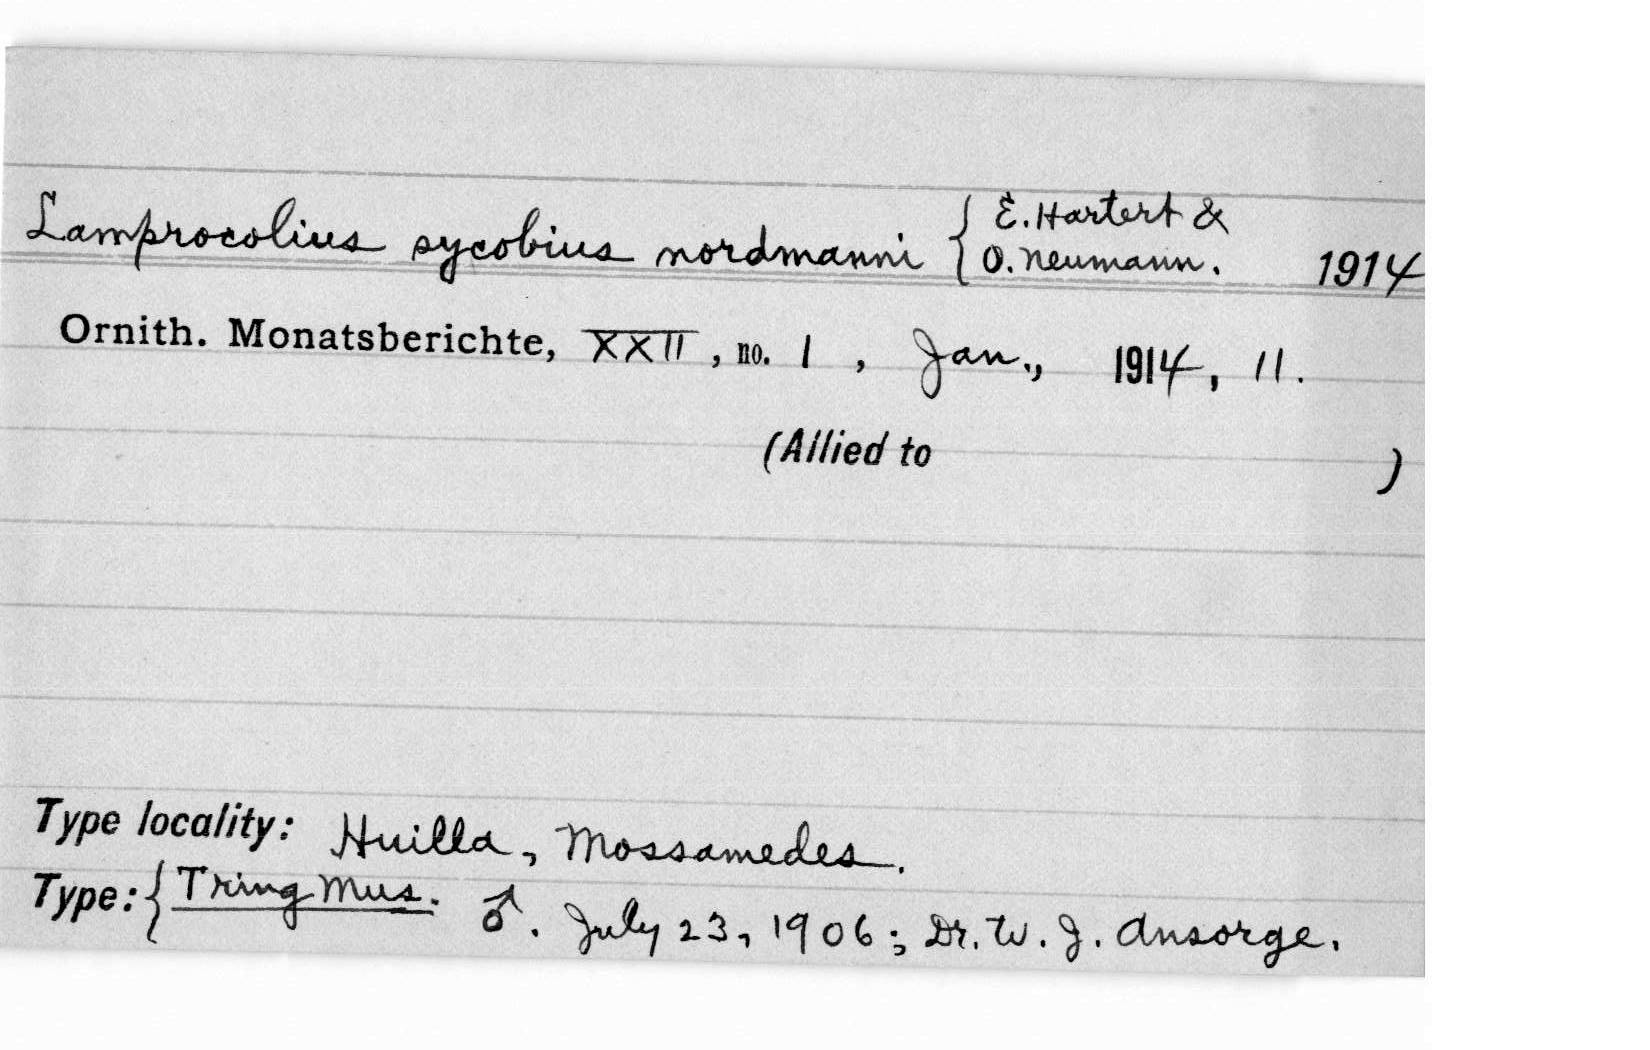 Lamprocolius sycobius nordmanni { E. Hartert & O. Neumann. 1914
Ornith. Monatsberichte, XXII, no. 1, Jan., 1914, 11.
(Allied to )
Type locality: Huilla, Mossamedes.
Type: { Tring Mus. ♂. July 23, 1906; Dr. W. J. Ansorge.